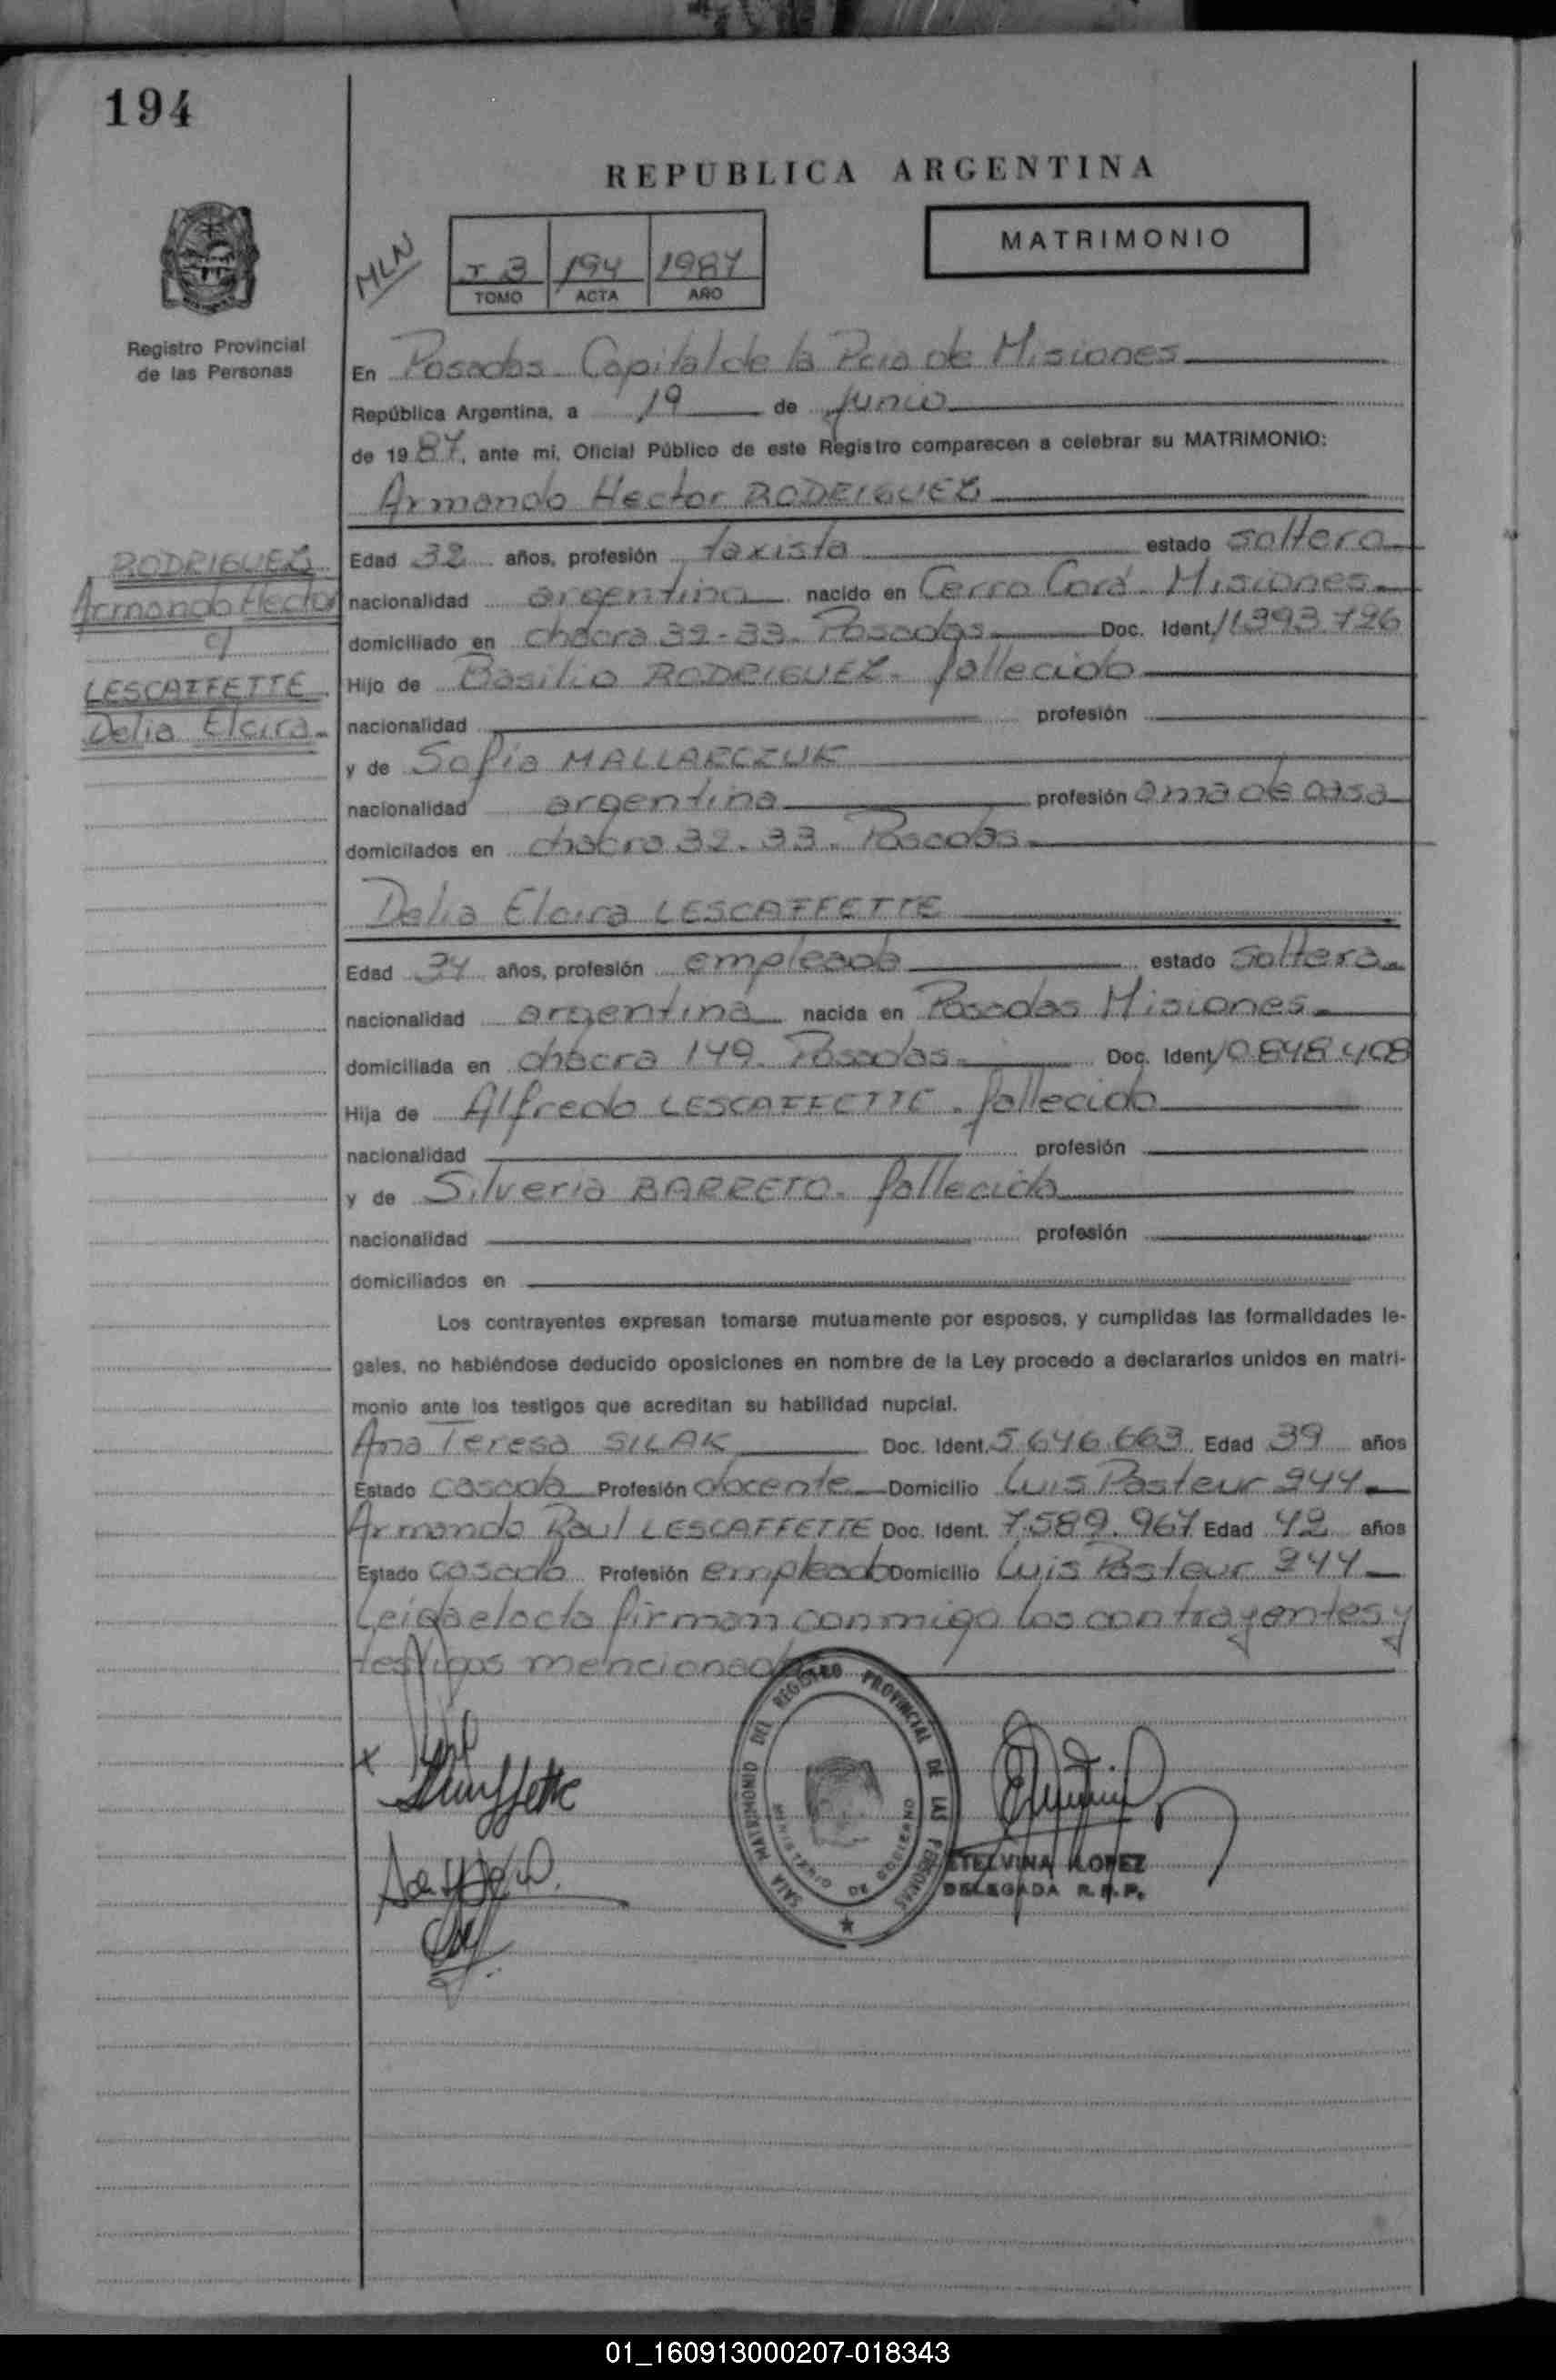 194
REPUBLICA ARGENTINA
MATRIMONIO
MLN
T 3 194 1987
TOMO ACTA AÑO
Registro Provincial
de las Personas
En Posadas Capital de la Pcia de Misiones
República Argentina, a 19 de Junio
de 1987, ante mi, Oficial Público de este Registro comparecen a celebrar su MATRIMONIO:
Armando Hector RODRIGUEZ
RODRIGUEZ
Armando Hector
c/
LESCAFFETTE
Delia Elcira
Edad 32 años, profesión taxista estado soltero
nacionalidad argentina nacido en Cerro Corá Misiones
domiciliado en chacra 32-33. Posadas Doc. Ident 11.393.726
Hijo de Basilio RODRIGUEZ. fallecido
nacionalidad profesión
y de Sofia MALLARCZUK
nacionalidad argentina profesión ama de casa
domicilados en chacra 32.33. Posadas
Delia Elcira LESCAFFETTE
Edad 34 años, profesión empleada estado soltera
nacionalidad argentina nacida en Posadas Misiones
domiciliada en chacra 149. Posadas Doc. Ident 10.848.408
Hija de Alfredo LESCAFFETTE. fallecido
nacionalidad profesión
y de Silveria BARRETO. fallecida
nacionalidad profesión
domiciliados en
Los contrayentes expresan tomarse mutuamente por esposos, y cumplidas las formalidades le-
gales, no habiéndose deducido oposiciones en nombre de la Ley procedo a declararlos unidos en matri-
monio ante los testigos que acreditan su habilidad nupcial.
Ana Teresa SILAK Doc. Ident. 5.646.663 Edad 39 años
Estado casada Profesión docente Domicilio Luis Pasteur 944
Armando Raul LESCAFFETTE Doc. Ident. 7.589.967 Edad 42 años
Estado casado Profesión empleado Domicilio Luis Pasteur 944
Leida el acta firman conmigo los contrayentes y
testigos mencionados
SALA MATRIMONIO DEL REGISTRO PROVINCIAL DE LAS PERSONAS
MINISTERIO DE GOBIERNO
ETELVINA LOPEZ
DELEGADA R.P.P.
01_160913000207-018343